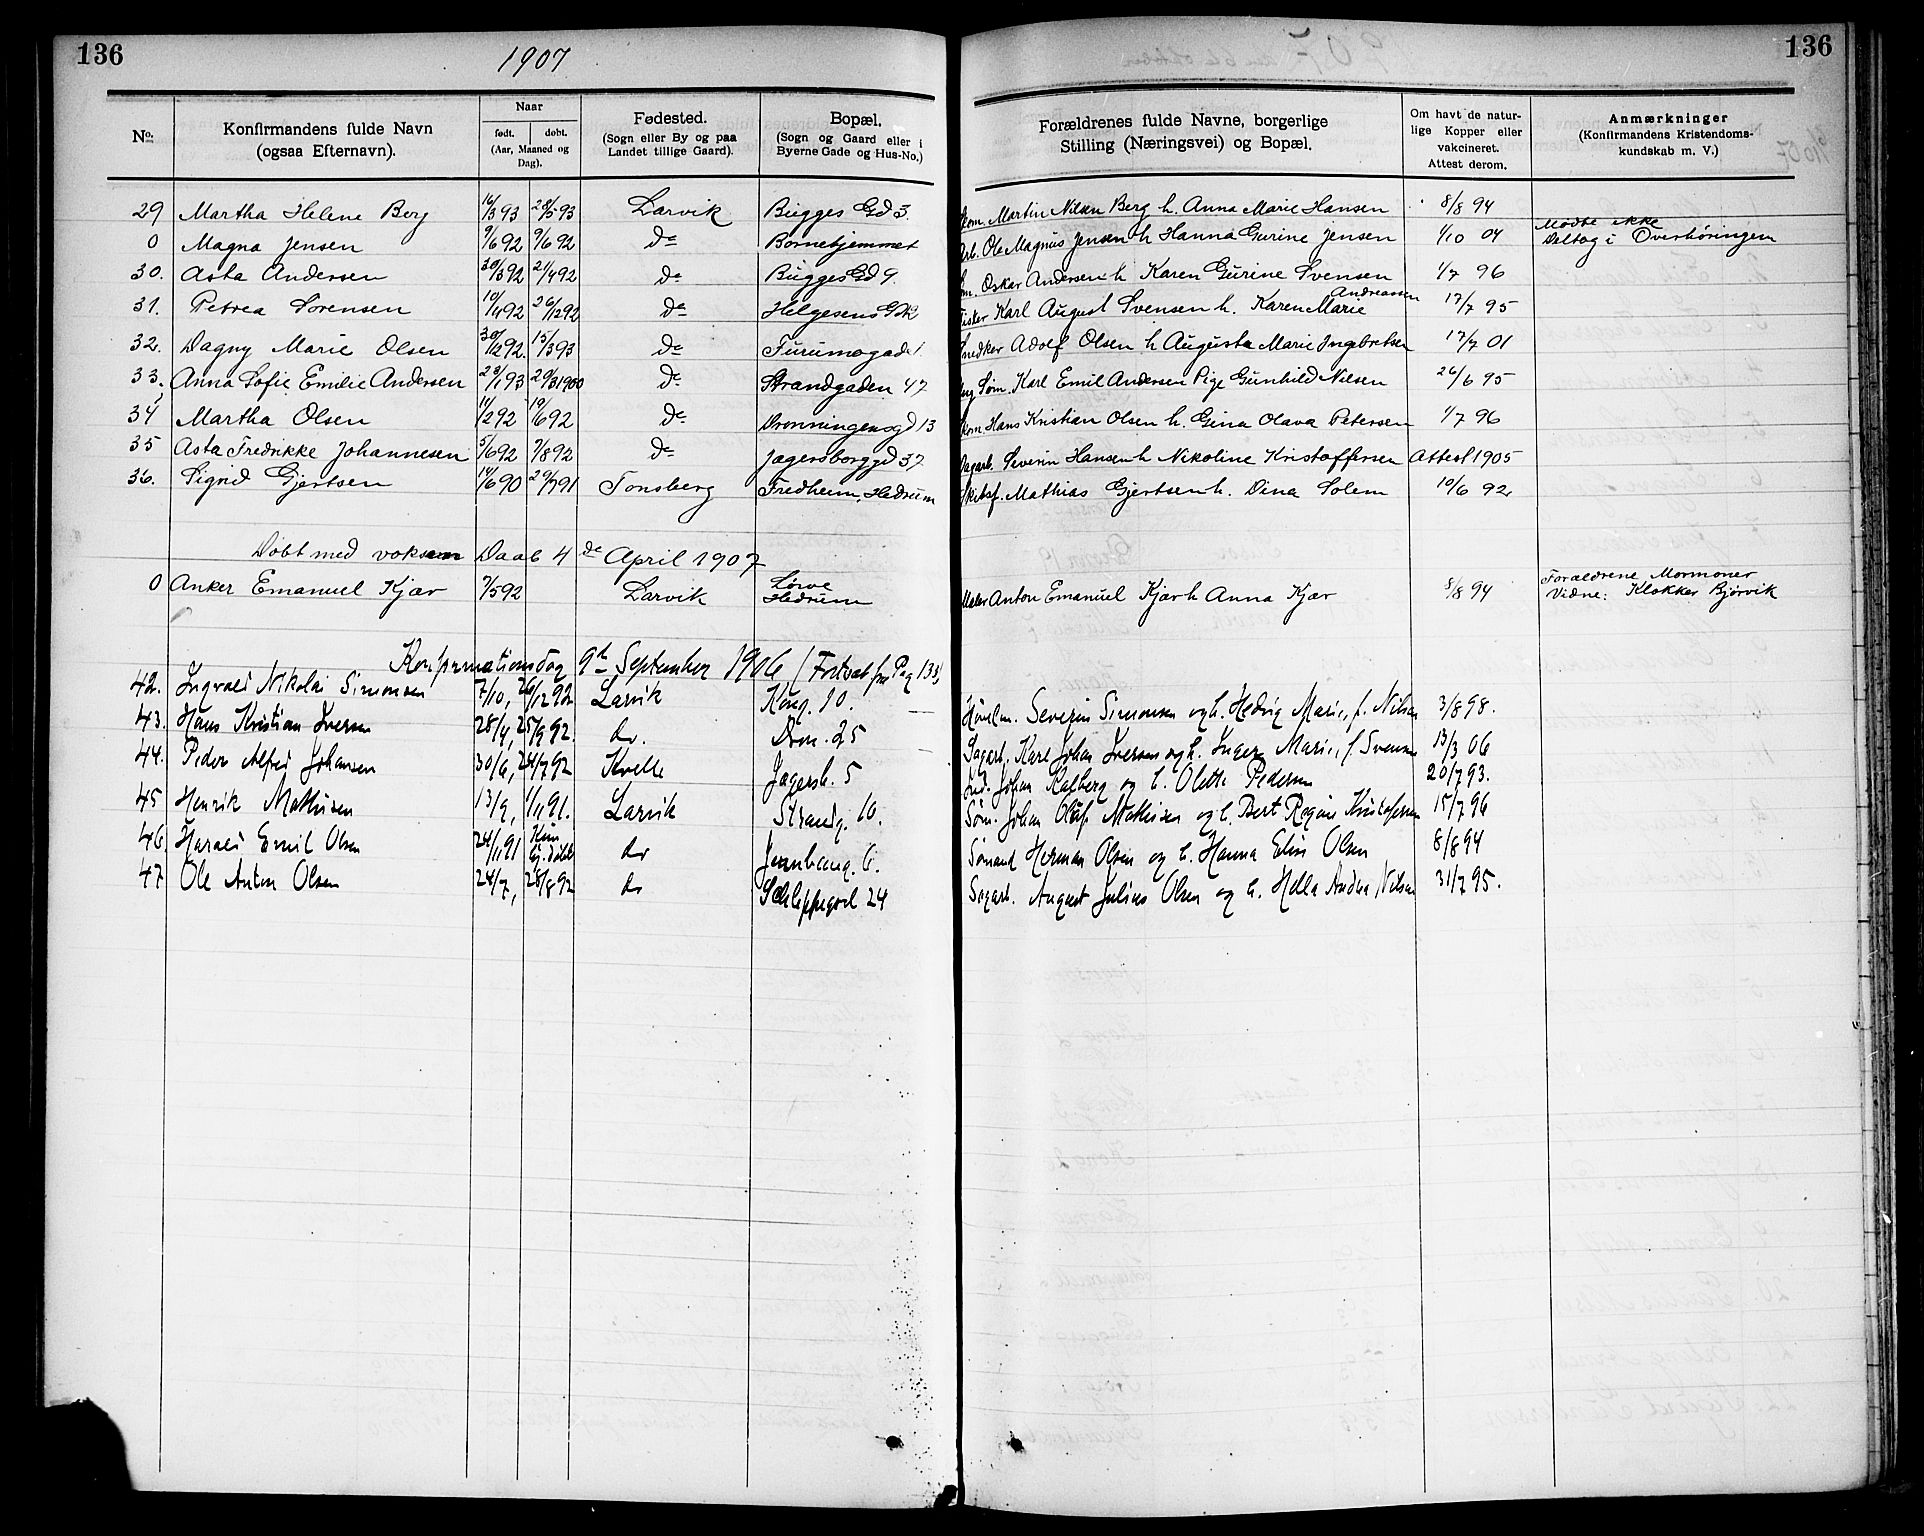 136
1907
136
No.
Konfirmandens fulde Navn
(ogsaa Efternavn).
Naar
født.
døbt.
(Aar, Maaned og
Dag).
Fødested.
(Sogn eller By og paa
Landet tillige Gaard).
Bopæl.
(Sogn og Gaard eller i
Byerne Gade og Hus-No.)
Forældrenes fulde Navne, borgerlige
Stilling (Næringsvei) og Bopæl.
Om havt de natur-
lige Kopper eller
vakcineret.
Attest derom.
Anmærkninger
(Konfirmandens Kristendoms-
kundskab m. V.)
29 Martha Helene Berg 16/3 93 28/5 93 Larvik Bugges Gd 3. Martin Nilsen Berg h. Anna Marie Hansen 8/8 94
0 Magna Jensen 9/6 92 9/6 92 do Børnehjemmet Arb. Ole Magnus Jensen h Hanna Gurine Jensen 1/10 04 Mødte ikke
Deltog i Overhøringen
30. Asta Andersen 30/3 92 21/4 92 do Bugges Gd 9. Oskar Andersen h Karen Gurine Svensen 1/7 96
31. Petrea Sørensen 10/4 92 26/12 92 do Helgesens G Karl August Svensen h. Karen Marie Andreassen 17/7 95
32. Dagny Marie Olsen 30/12 92. 15/3 93 do Furumogad 1 Snedker Adolf Olsen h Augusta Marie Ingebretsen 17/7 01
33. Anna Sofie Emilie Andersen 28/1 93 20/3 1900 do Strandgaden 47 Søm. Karl Emil Andersen Pige Gunhild Nilsen 26/6 95
34 Martha Olsen 11/2 92 19/6 92 do Dronningensgd 13 Hans Kristian Olsen h. Gina Olava Petersen 1/7 96
35 Asta Fredrikke Johannesen 5/6 92 7/8 92 do Jagersborggd 37 Dagarb. Severin Hansen h Nikoline Kristoffersen Attest 1905
36. Sigrid Gjertsen 14/6 90 29/7 91 Tonsberg Fredheim, Hedrum Skibsf. Mathias Gjertsen h. Dina Solem 10/6 92
Døbt med voksen Daab 4de April 1907
0 Anker Emanuel Kjær 7/5 92 Larvik Lørve
Hedrum Maler Anton Emanuel Kjær h Anna Kjær 8/8 94 Forældrene Mormoner
Vidne: Klokker Bjørvik
Konfirmationsdag 9de September 1906 (Fortsat fra Pag 133)
42. Ingvald Nikolai Simonsen 7/10, 26/12 92 Larvik Kong. 10. Severin Simonsen og h. Hedvig Marie, f. Nilsen 3/8 98.
43. Hans Kristian Iversen 28/4, 25/9 92. do. Dron. 25 Dagarb. Karl Johan Iversen og h. Inger Marie, f. Svensen 13/3 06
44. Peder Alfred Johansen 30/6, 24/7 92 Kvelle Jagersb. 5 Ind. Johan Kalberg og h. Olette Pedersen 20/7 93.
45 Henrik Mathisen 13/9, 1/11 91. Larvik Strandg. 10. Søm. Johan Oluf Mathisen og h. Bert Regine Kristofersen 15/7 96
46. Harald Emil Olsen 24/11 91 Kun
hj. døbt do Jernbaneg. 6. Sømand Herman Olsen og h. Hanna Elise Olsen 8/8 94
47 Ole Anton Olsen 24/7, 28/8 92 do Schleppegrel 24 Sagarb. August Julius Olsen og h. Hella Andrea Nilsen 31/7 95.